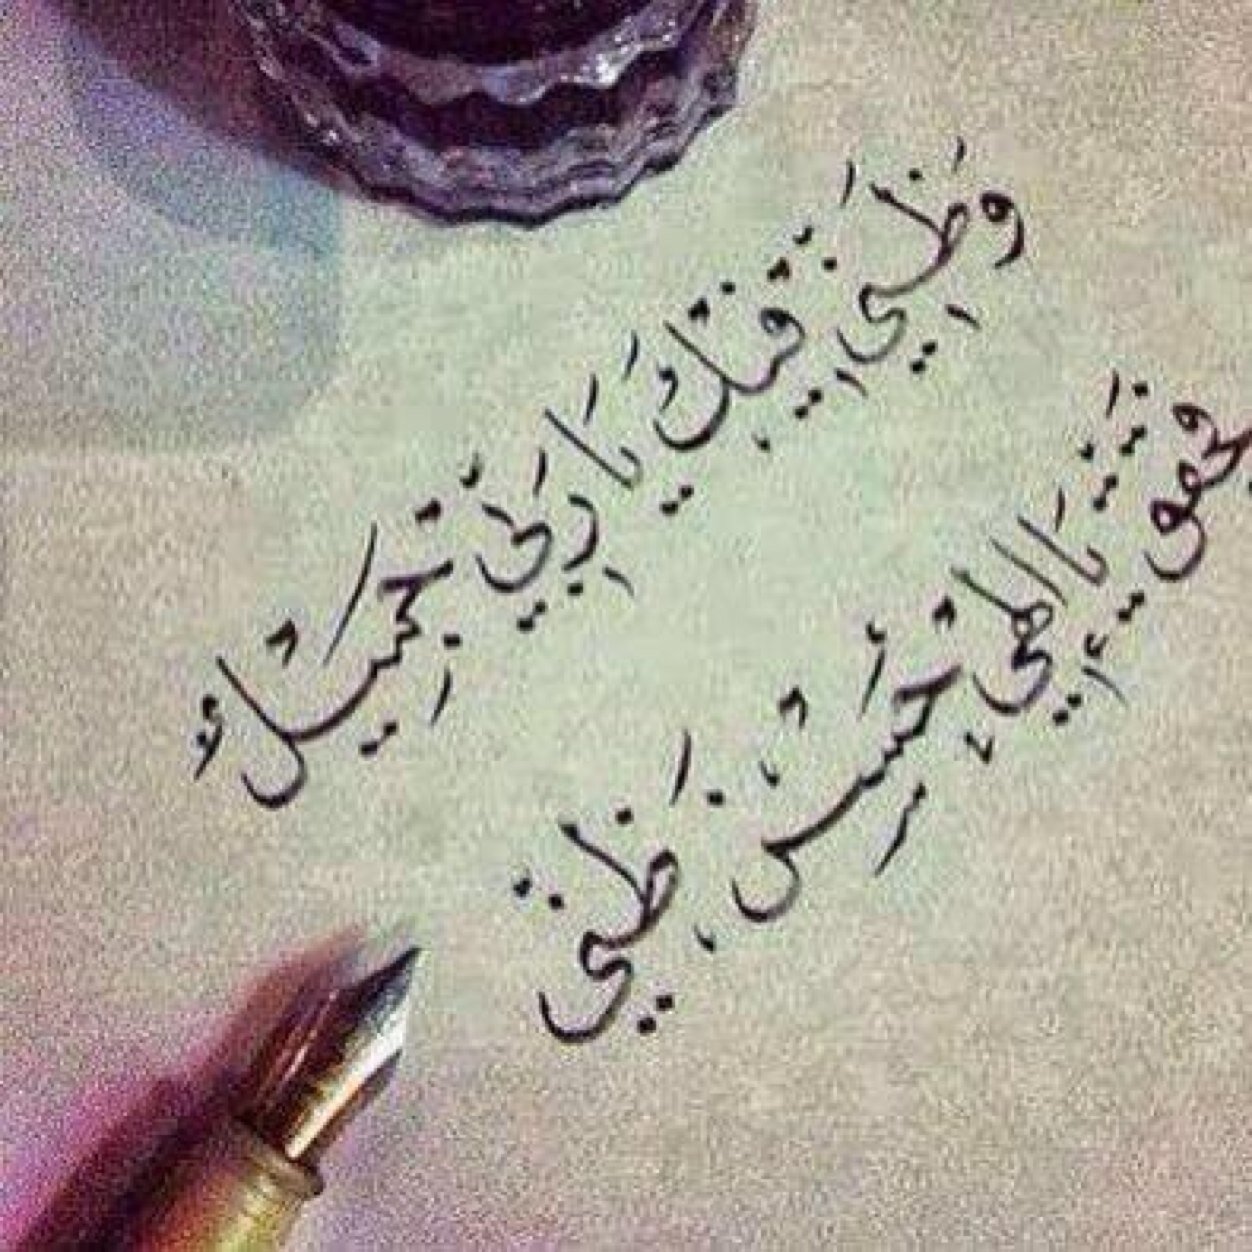 وَظَنِّي فِيْكَ يَا رَبِّي جَمِيْلٌ
فَحَقِّقْ يَا إِلٰهِي حُسْنَ ظَنِّي